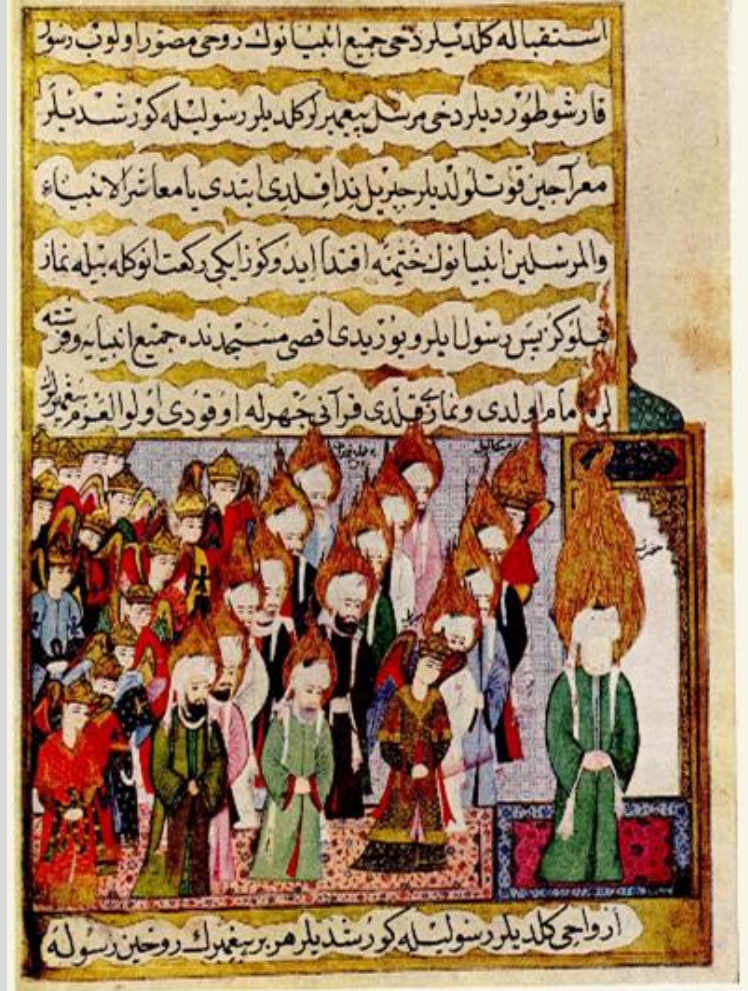 استقباله كلدیلر دخی جمیع انبیانوك روحی مصور اولوب رسول
قارشو طوردیلر دخی مرسل پیغمبرلر كلدیلر رسولیله كورشدیلر
معراجین قوتلولدیلر جبریل ندا قلدی ایتدی یا معاشر الانبیاء
والمرسلین انبیانوك ختمنه اقتدا ایدوكوز ایكی ركعت انوكله بیله نماز
قیلوكز پس رسول ایلرو یوریدی اقصی مسجدنده جمیع انبیایه و فرشته
لره امام اولدی و نمازی قلدی قرآنی جهرله اوقودی اولو العزم پیغمبرلر
میكائیل
ارواحی كلدیلر رسولیله كورشدیلر هر بر پیغمبرك روحین رسوله